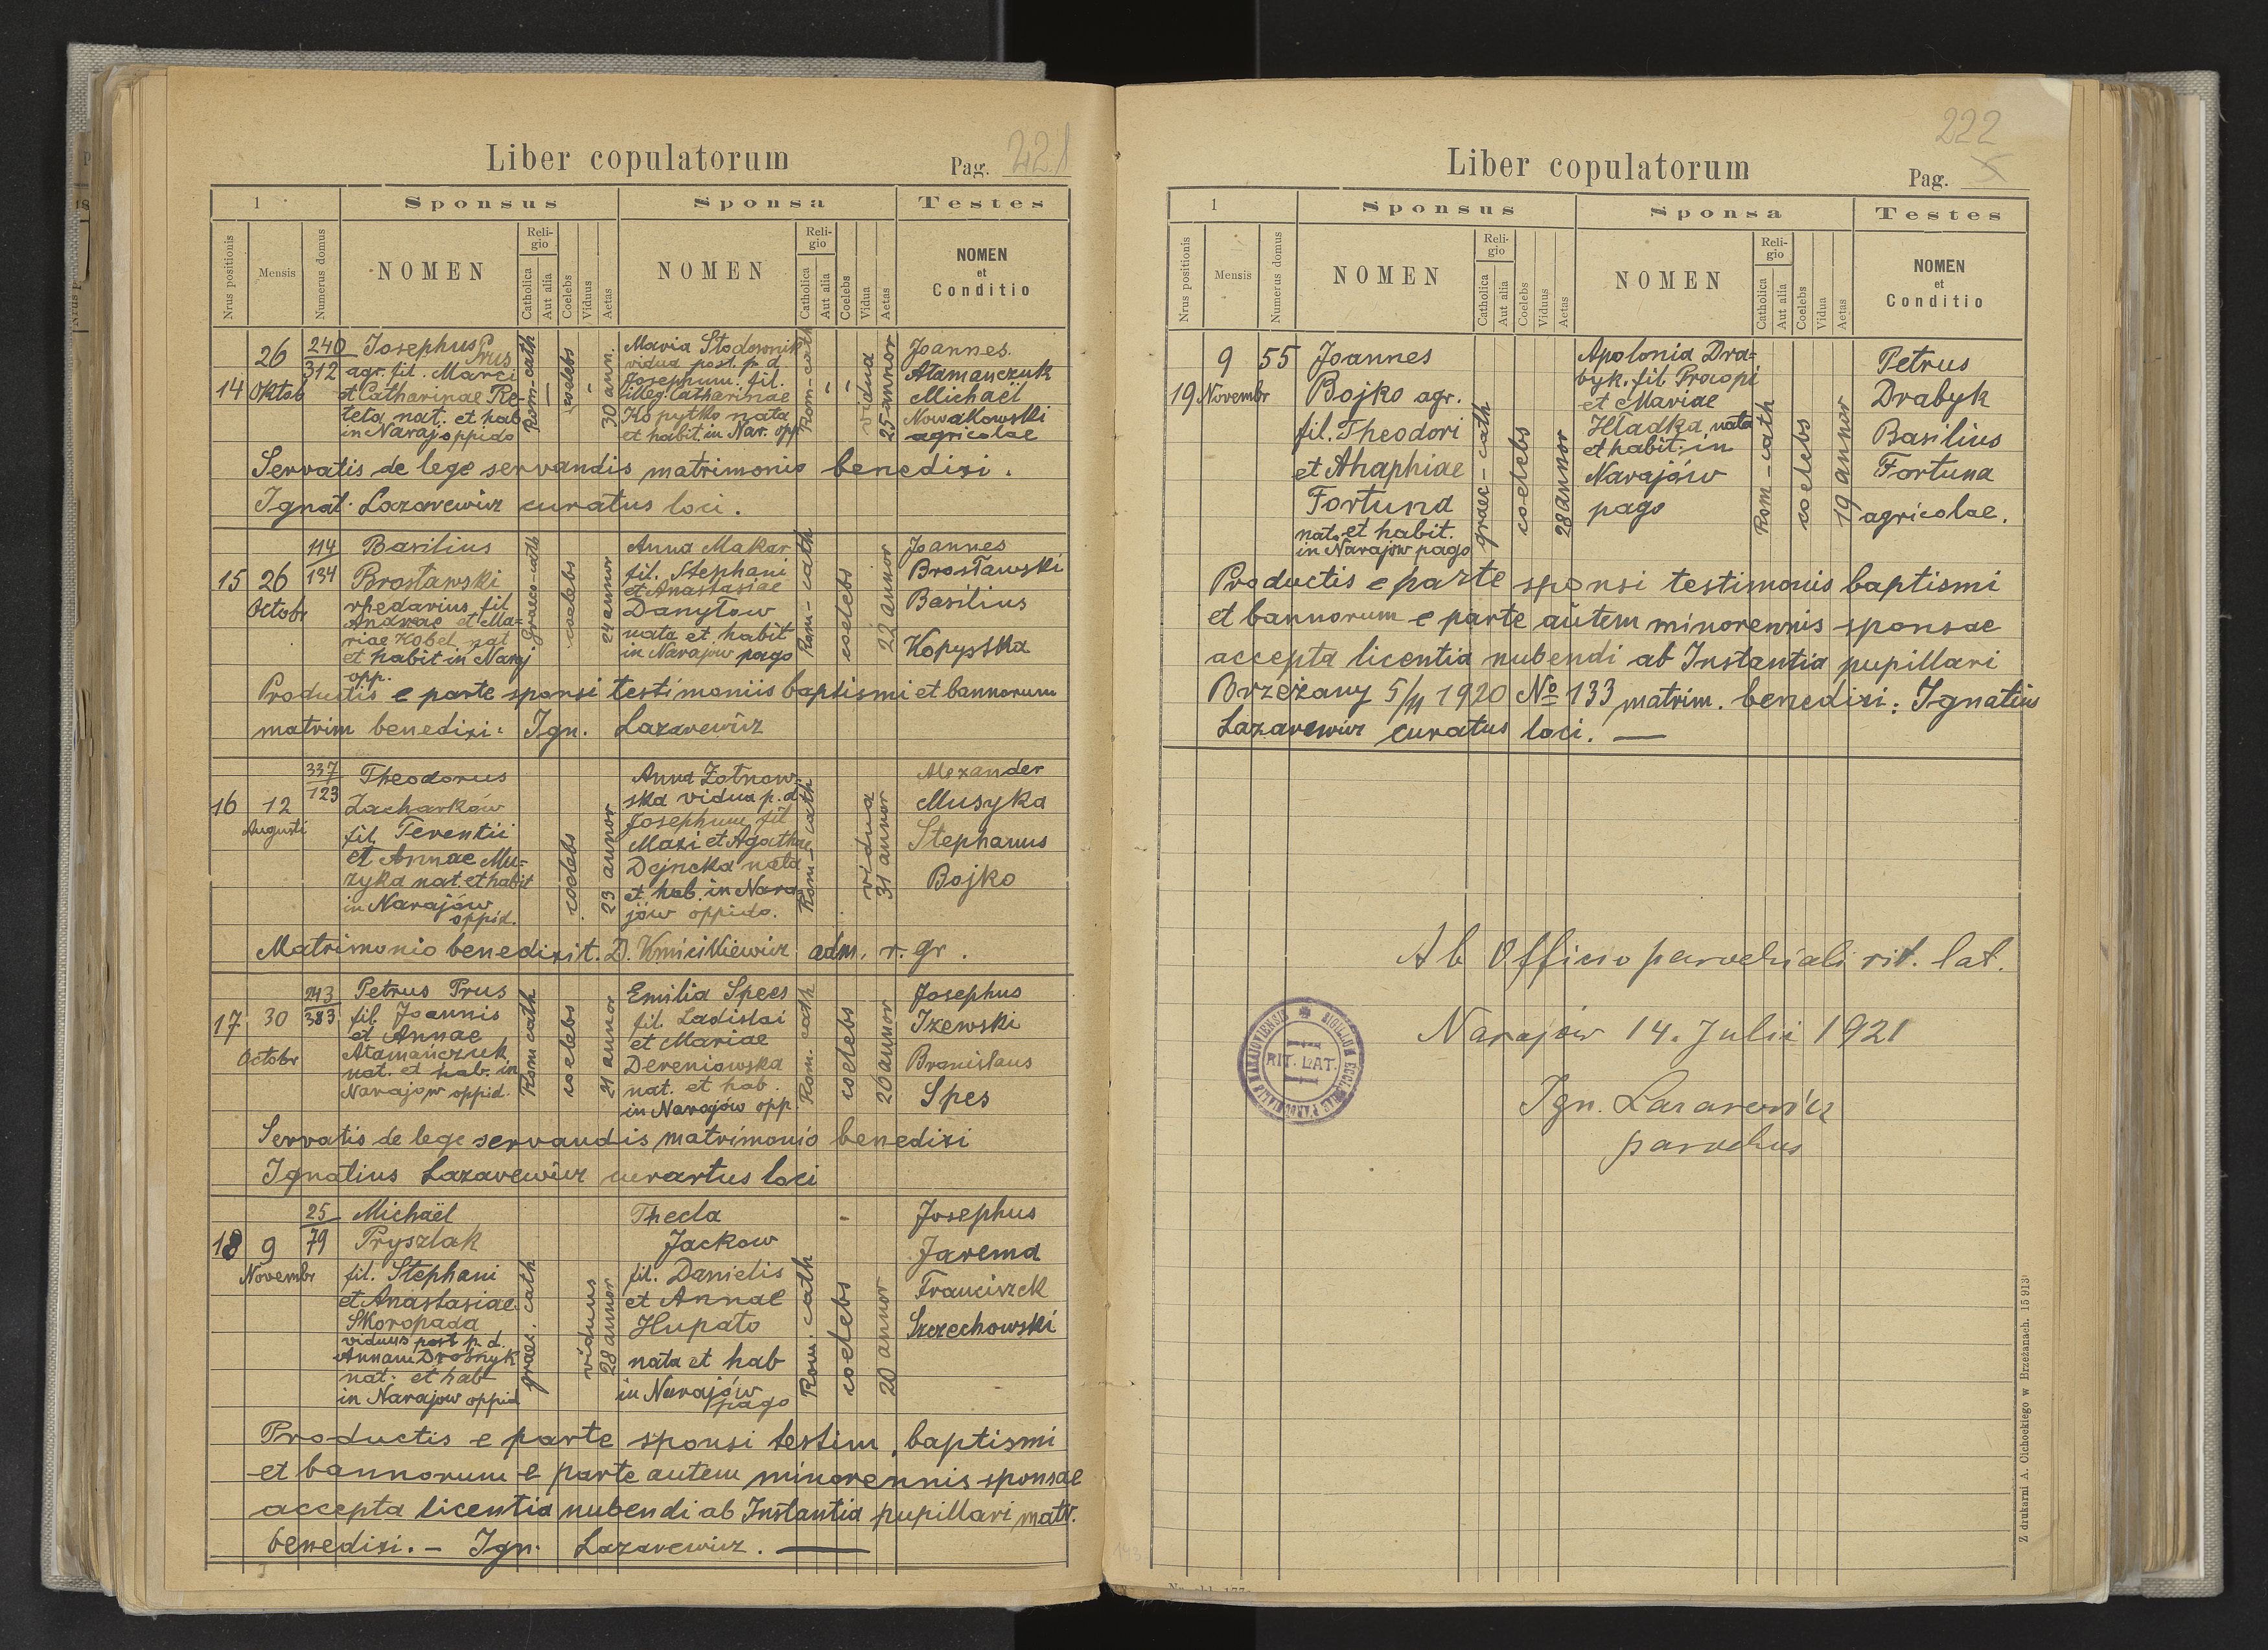 Liber copulatorum
Pag. 221
1
Sponsus
Sponsa
Testes
Nrus positionis
Mensis
Numerus domus
NOMEN
Religio
Catholica
Aut alia
Coelebs
Viduus
Aetas
NOMEN
Religio
Catholica
Aut alia
Coelebs
Vidua
Aetas
NOMEN
et
Conditio
14
26
Oktob
240
312
Josephus Prus
agr. fil. Marci
et Catharinae Re-
teta nat. et hab
in Naraj oppido
Rom-cath
coelebs
30 ann.
Maria Stodownik
vidua post. p. d.
Josephum. fil.
illeg. Catharinae
Kopytko nata
et habit. in Nar. opp
Rom-cath
vidua
25 annor
Joannes
Atamanczuk
Michaël
Nowakowski
agricolae
Servatis de lege servandis matrimonio benedixi.
Ignat. Lazarewicz curatus loci.
15
26
Octobr
114
134
Basilius
Brosławski
rhedarius fil
Andreae et Ma=
riae Kobel nat
et habit in Naraj
opp.
graeco-cath
coelebs
24 annor
Anna Makar
fil. Stephani
et Anastasiae
Danyłow
nata et habit
in Narajow pago
Rom-cath
coelebs
22 annor
Joannes
Brosławski
Basilius
Kopystka
Productis e parte sponsi testimoniis baptismi et bannorum
matrim benedixi: Ign. Lazarewicz
16
12
Augusti
337
123
Theodorus
Zacharków
fil. Terentii
et Annae Mu-
zyka nat. et habit
in Narajów
oppid.
coelebs
23 annor
Anna Żotnow-
ska vidua p. d
Josephum fil
Maxi et Agathae
Dejneka nata
et hab. in Nara
jów oppido.
Rom-cath
vidua
31 annor
Alexander
Musyka
Stephanus
Bojko
Matrimonio benedixit. D. Kmicikiewicz adm. r. gr.
17
30
Octobr
243
383
Petrus Prus
fil. Joannis
et Annae
Atamańczuk
nat. et hab. in
Narajow oppid.
Rom cath
coelebs
21 annor
Emilia Spees
fil. Ladislai
et Mariae
Dereniowska
nat. et hab.
in Narajów opp.
Rom. cath
coelebs
20 annor
Josephus
Izewski
Bronislaus
Spes
Servatis de lege servandis matrimonio benedixi
Ignatius Lazarewicz curartus loci
18
9
Novembr
25
79
Michaël
Pryszlak
fil. Stephani
et Anastasiae
Skoropada
viduus post p. d.
Annam Drobnyk
nat. et hab
in Narajow oppid
graec. cath
viduus
28 annor
Thecla
Jackow
fil. Danielis
et Annae
Hupato
nata et hab
in Narajów
pago
Rom. cath
coelebs
20 annor
Josephus
Jarema
Franciszek
Szczechowski
Productis e parte sponsi testim. baptismi
et bannorum e parte autem minorennis sponsae
accepta licentia nubendi ab Instantia pupillari matr.
benedixi. – Ign. Lazarewicz. —
222
Liber copulatorum
Pag.
1
Sponsus
Sponsa
Testes
Nrus positionis
Mensis
Numerus domus
NOMEN
Religio
Catholica
Aut alia
Coelebs
Viduus
Aetas
NOMEN
Religio
Catholica
Aut alia
Coelebs
Vidua
Aetas
NOMEN
et
Conditio
19
9
Novembr
55
Joannes
Bojko agr.
fil. Theodori
et Ahaphiae
Fortuna
nat. et habit.
in Narajow pago
graec-cath
coelebs
28 annor
Apolonia Dra=
byk. fil. Procopi
et Mariae
Hładka nata
et habit. in
Narajów
pago
Rom-cath
coelebs
19 annor
Petrus
Drabyk
Basilius
Fortuna
agricolae.
Productis e parte sponsi testimonis baptismi
et bannorum e parte autem minorennis sponsae
accepta licentia nubendi ab Instantia pupillari
Brzeżany 5/11 1920 No 133 matrim. benedixi: Ignatius
Lazarewicz curatus loci. —
Ab Officio parochiali rit. lat.
Narajów 14. Julii 1921
Ign. Lazarewicz
parochus
SIGILLUM ECCLESIAE PAROCHIALIS NARAJOVIENSIS
RIT. LAT.
Z drukarni A. Cichockiego w Brzeżanach. 15 913